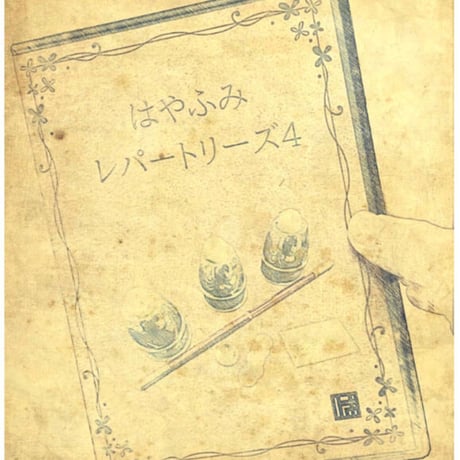 はやふみ
レパートリーズ4